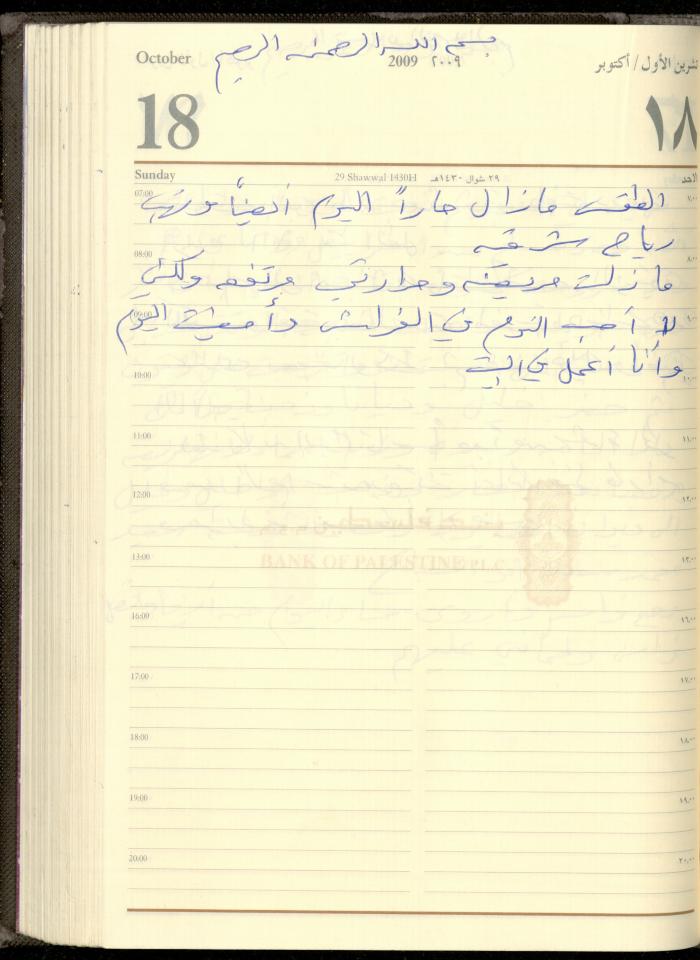 بسم الله الرحمن الرحيم
October 2009 ٢٠٠٩ تشرين الأول / أكتوبر
18 ١٨
Sunday 29 Shawwal 1430H ٢٩ شوال ١٤٣٠هـ الأحد
07:00 ٧:٠٠
الطقس مازال حاراً اليوم أيضاً وتهب
رياح شرقية
08:00 ٨:٠٠
ما زلت مريضة وحرارتي مرتفعة ولكني
09:00
لا أحب النوم في الفراش وأمضيت اليوم
وأنا أعمل في البيت
10:00 ١٠:٠٠
11:00 ١١:٠٠
12:00 ١٢:٠٠
BANK OF PALESTINE P.L.C.
13:00 ١٣:٠٠
16:00 ١٦:٠٠
17:00 ١٧:٠٠
18:00 ١٨:٠٠
19:00 ١٩:٠٠
20:00 ٢٠:٠٠